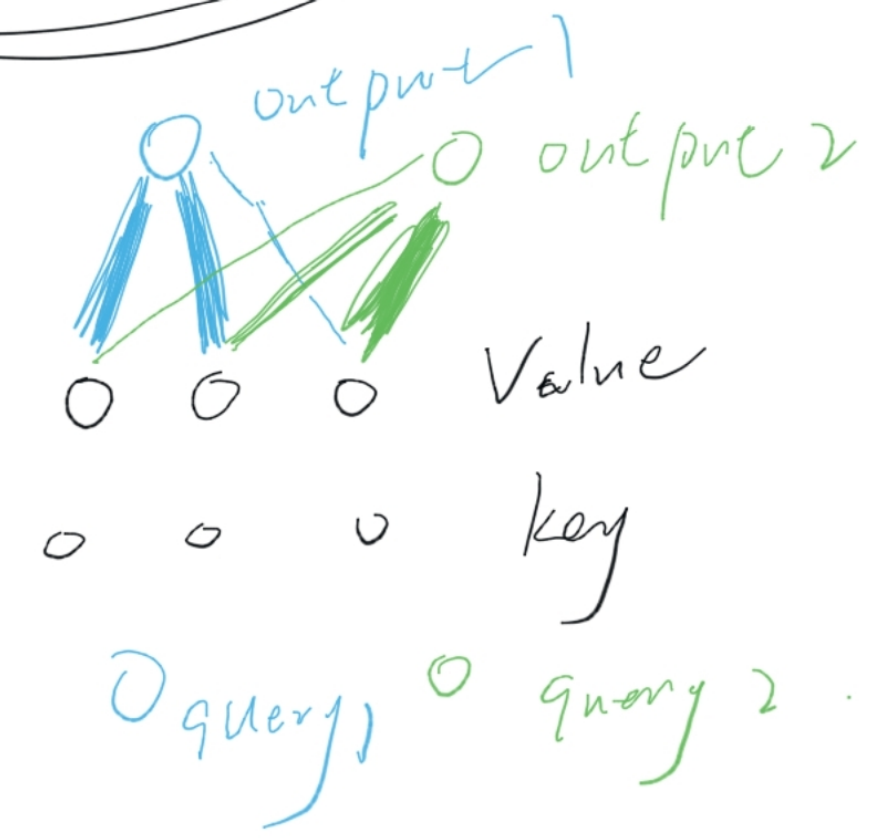 output 1
output 2
Value
key
query 1
query 2